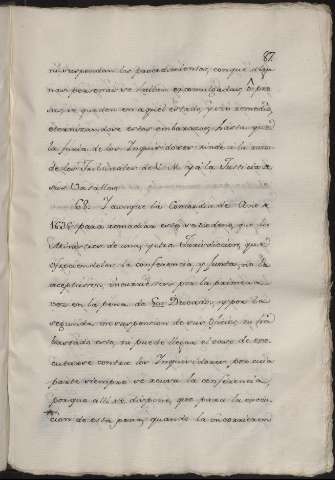 87.
ni suspendan los procedimientos, con que algu-
nas personas se hallen excomulgadas, ó pre-
sas, se queden en aquel estado, y sin remedio,
eternizandose estos embarazos, hasta que
la furia de los Inquisidores rinde a la razon
de los Tribunales de V. M. y á la Justicia de
sus Vasallos.
68. Y aunque la Concordia de
1635 para remediar esto, ordena, que los
Ministros de una, y otra Jurisdiccion, que
ofreciendoles la conferencia, y Junta, no la
aceptaren, incurriesen por la primera
vez en la pena de Ducados, y por la
segunda en suspension de sus oficios, no ha
bastado esto, ni puede llegar el caso de exe-
cutarse contra los Inquisidores, por cuia
parte siempre se escusa la conferencia,
porque alli se dispone, que para la execu-
cion de esta pena, quando la incurrieren